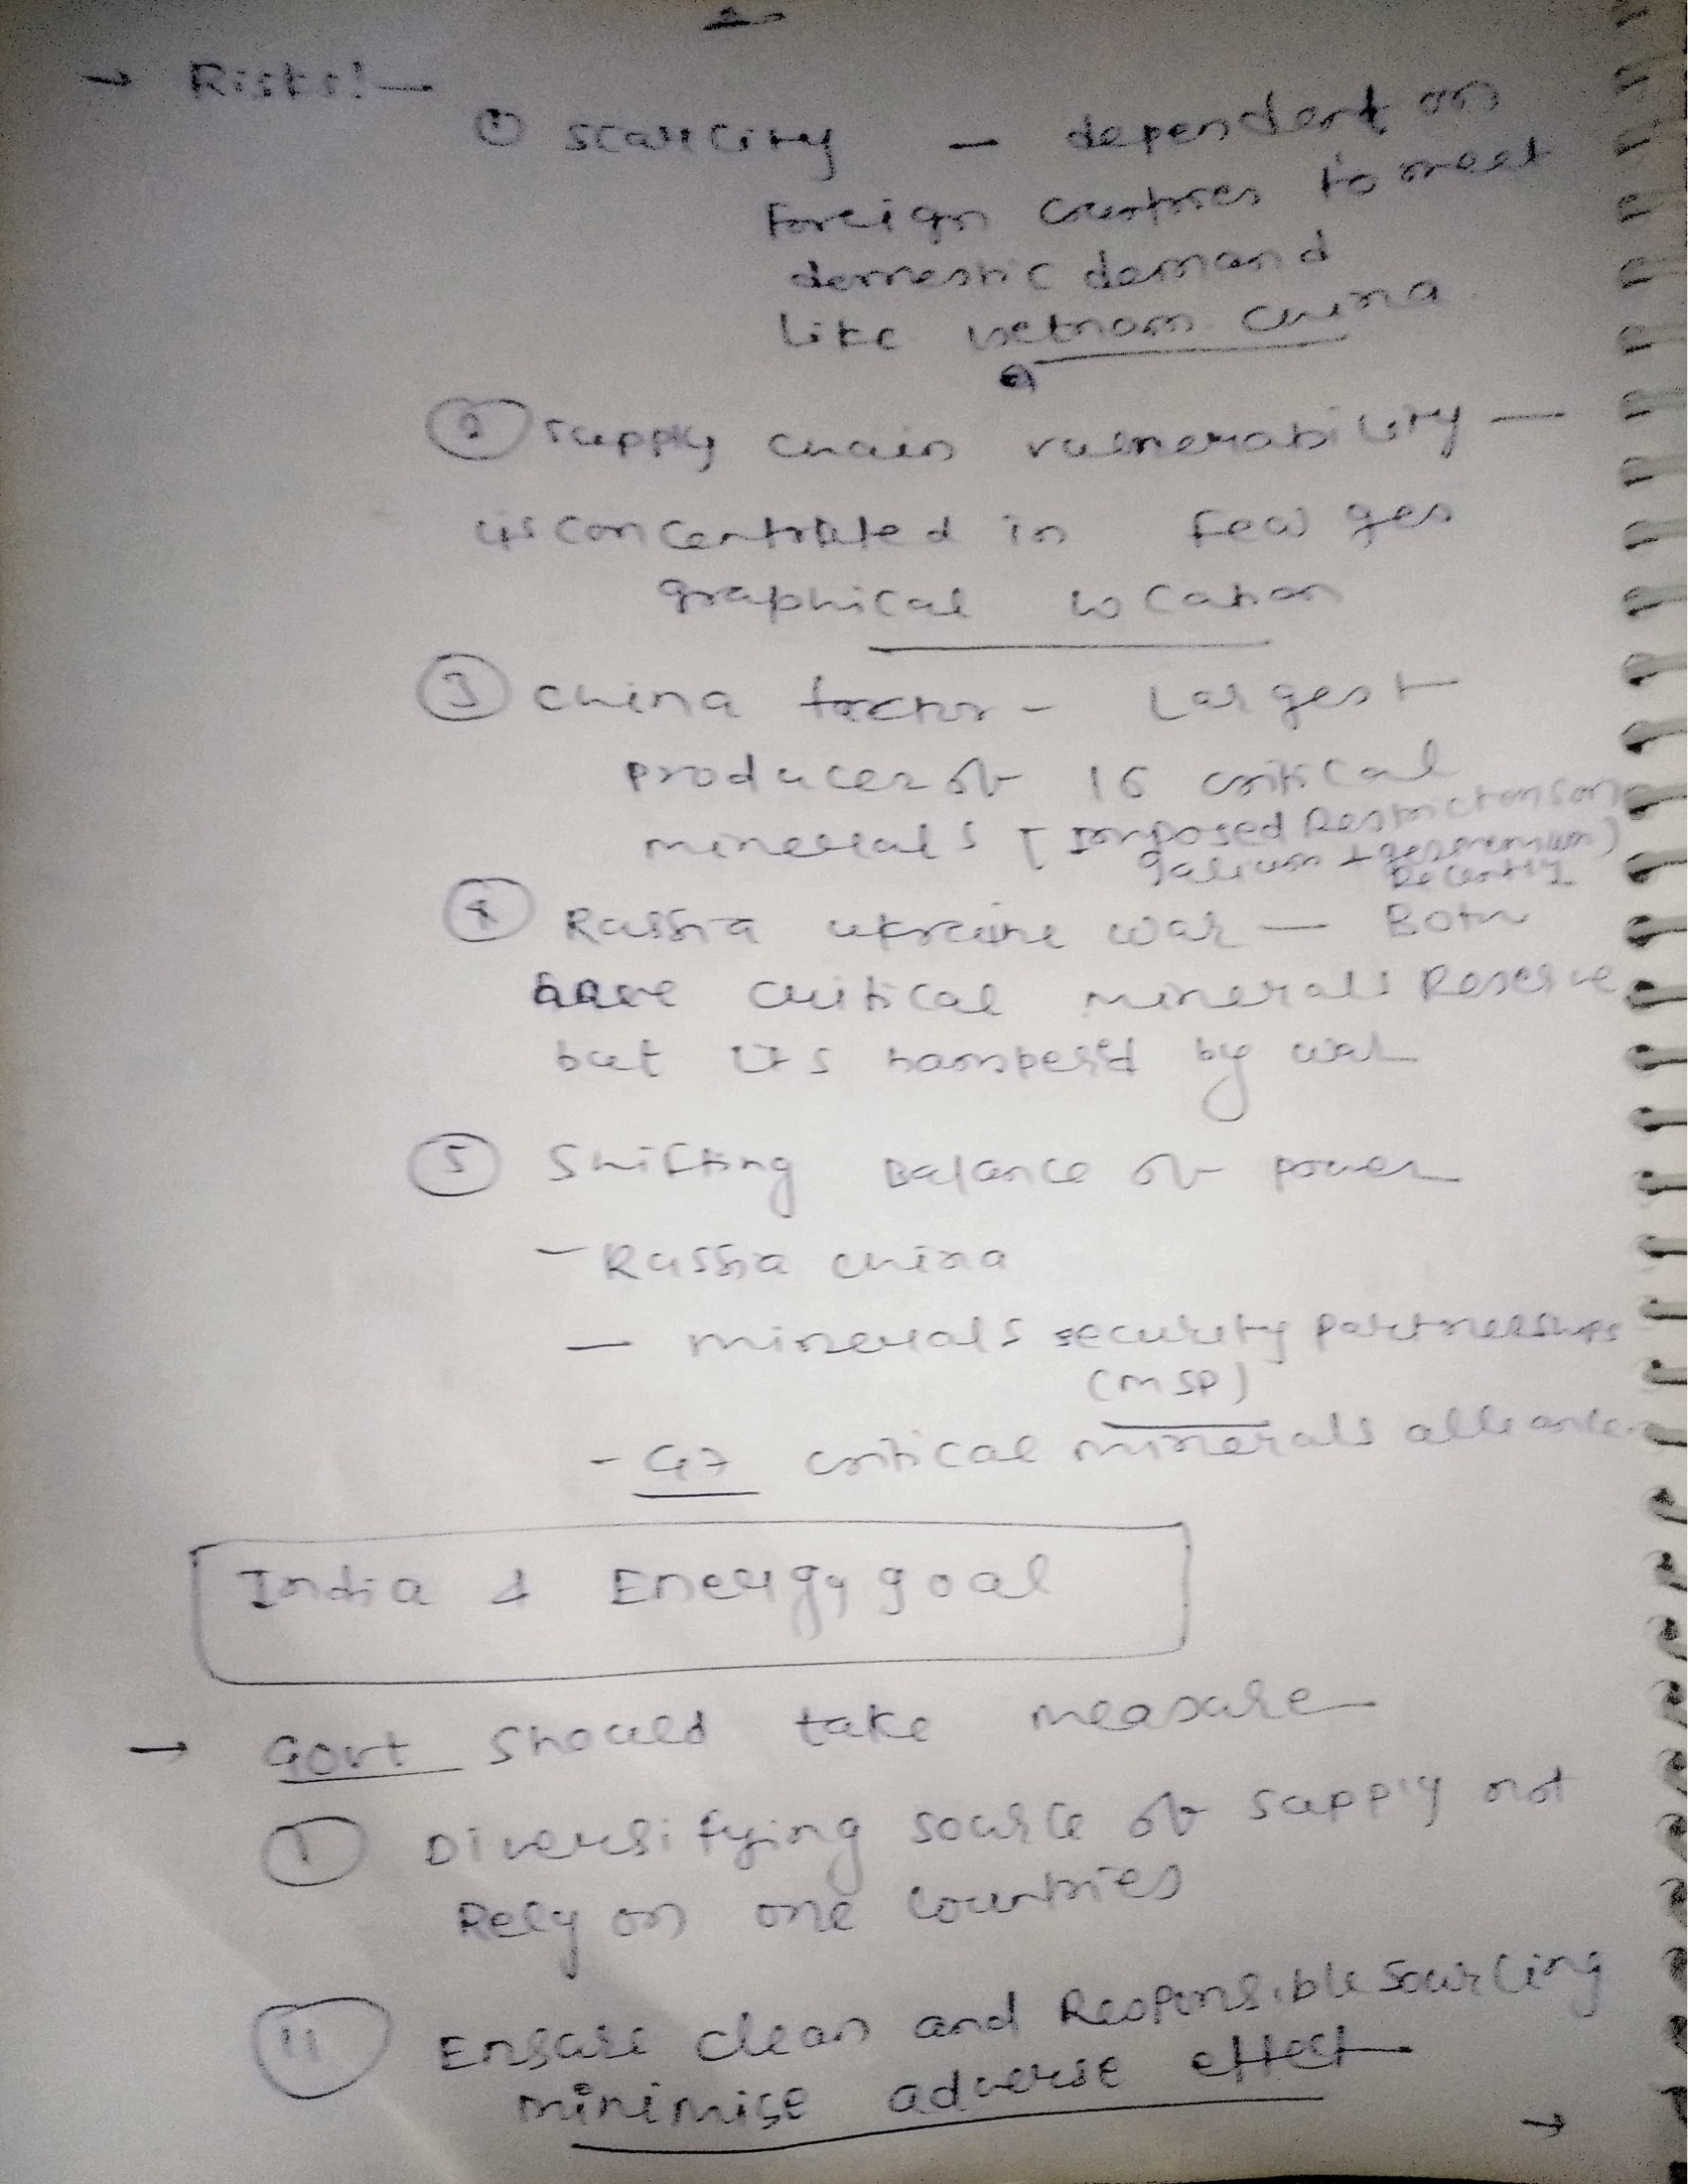 → Risks:—
① scarcity — dependent on
foreign countries to meet
domestic demand
like vetnam china
② supply chain vulnerability —
concentrated in few geo
graphical location
③ China factor - Largest
producer of 16 critical
minerals [Imposed Restrictions on
galium + geremenium)
Recently
④ Russia ukraine war — Both
have critical minerals Reserve
but its hampered by war
⑤ Shifting Balance of power
- Russia china
- minerals security partnerships
(MSP)
- G7 critical minerals alliance
India & Energy goal
→ Govt should take measure
① Diversifying source of supply not
Rely on one countries
⑪ Ensure clean and Responsible Sourcing
minimise adverse effect
→